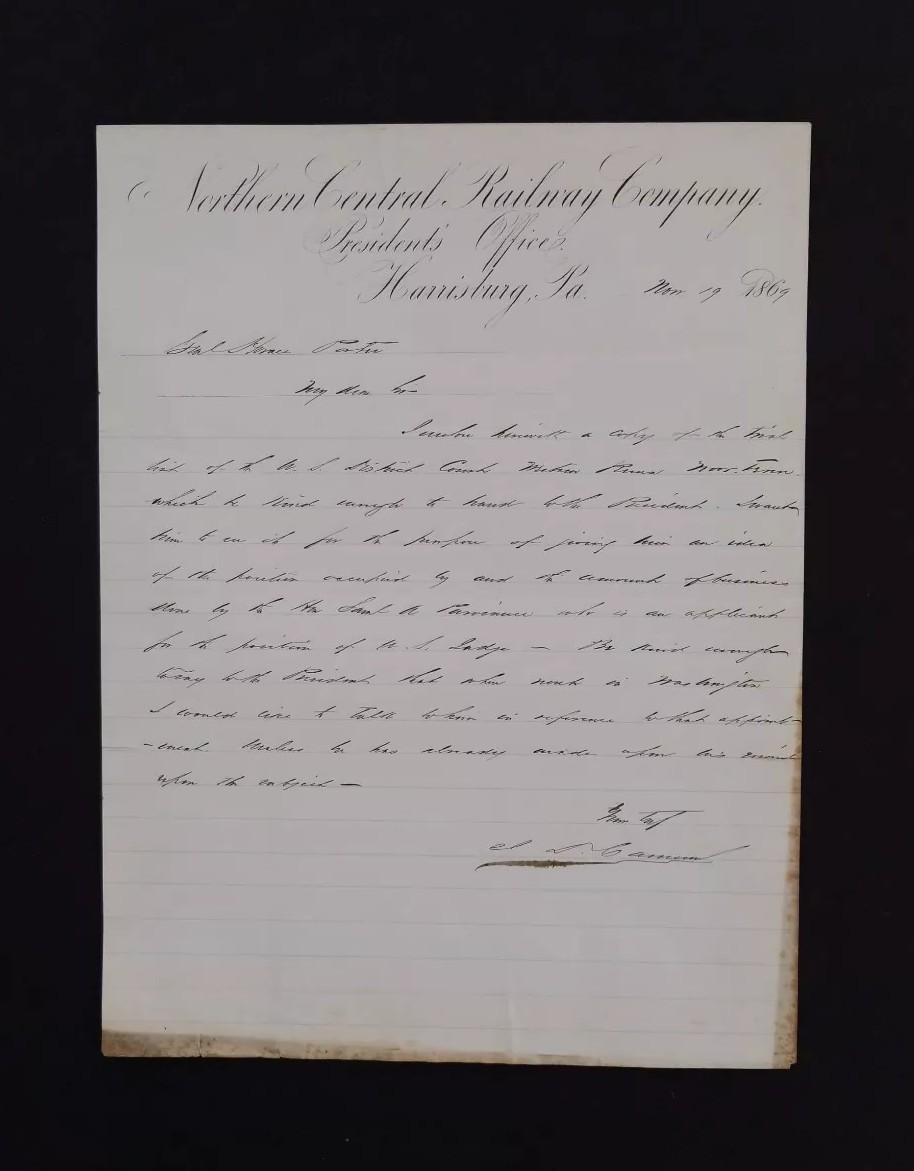 Northern Central Railway Company.
President's Office.
Harrisburg, Pa. Nov 19 1869
Genl Horace Porter
My dear Sir
I enclose herewith a copy of the trial
list of the U. S District Court Western Penna Nov. Term.
which be kind enough to hand to the President. I want
him to see it for the purpose of giving him an idea
of the position occupied by and the amount of business
done by the Hon Saml A Purviance who is an applicant
for the position of U. S. Judge — Be kind enough
to say to the President that when next in Washington
I would like to talk to him in reference to that appoint-
-ment Unless he has already made upon his mind
upon the subject —
Yours Truly
J. D. Cameron